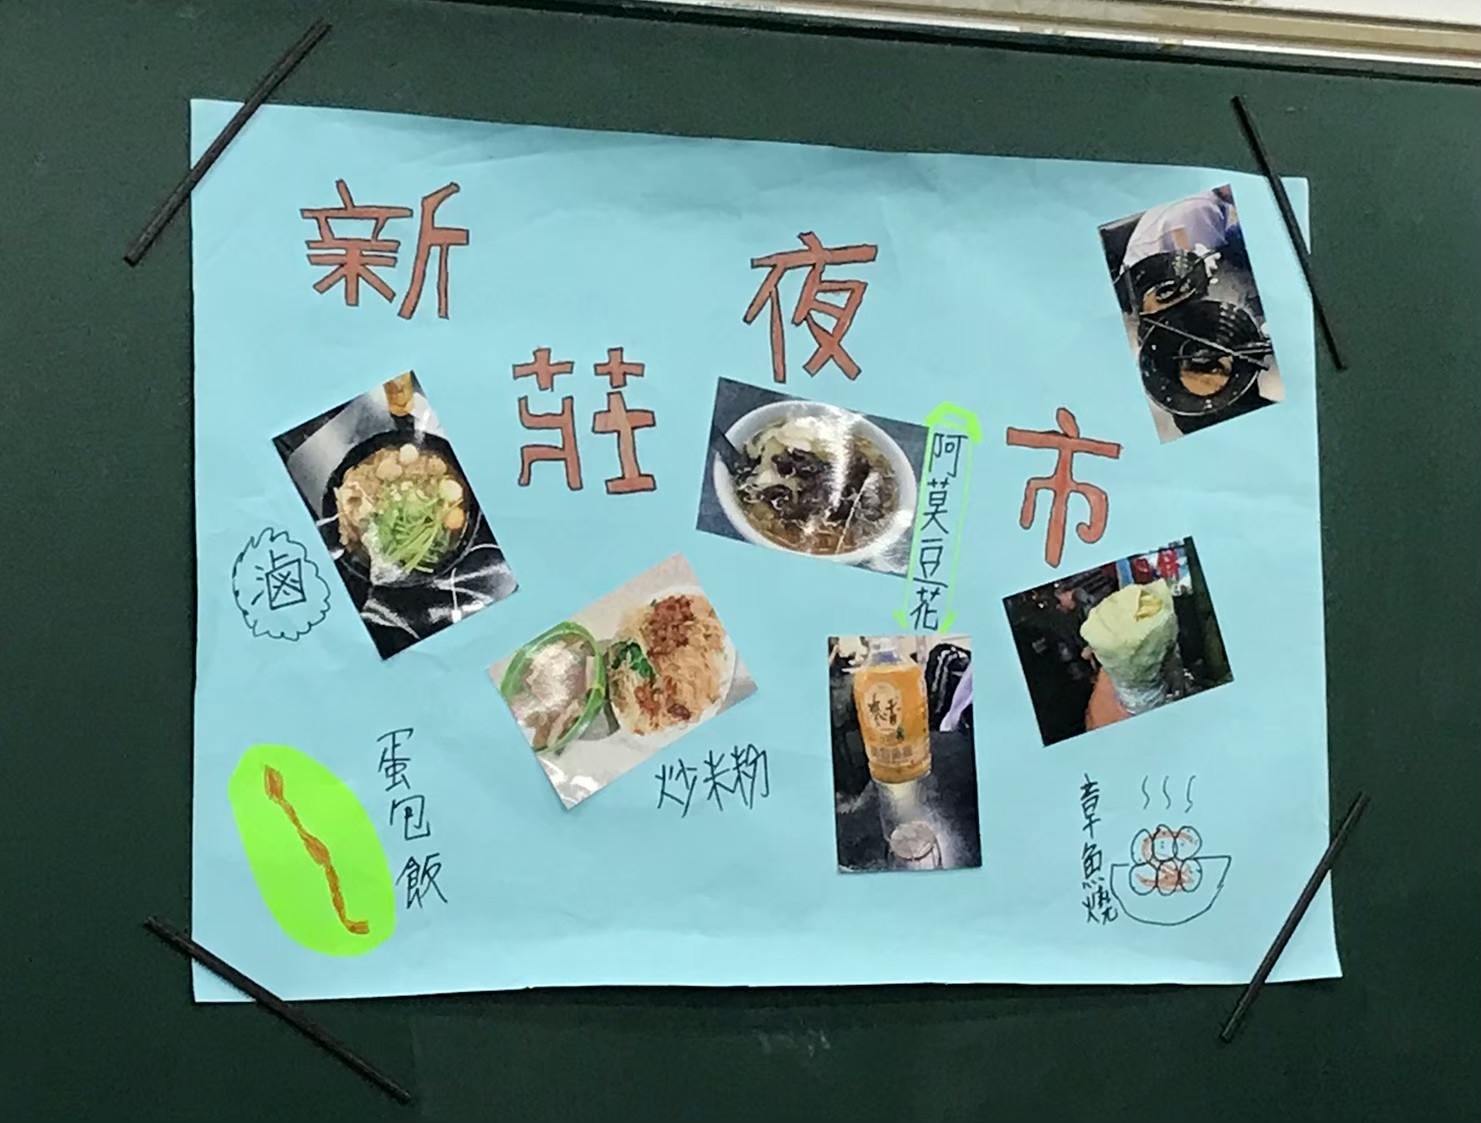 新莊夜市
阿莫豆花
滷
炒米粉
麥香
蛋包飯
章魚燒